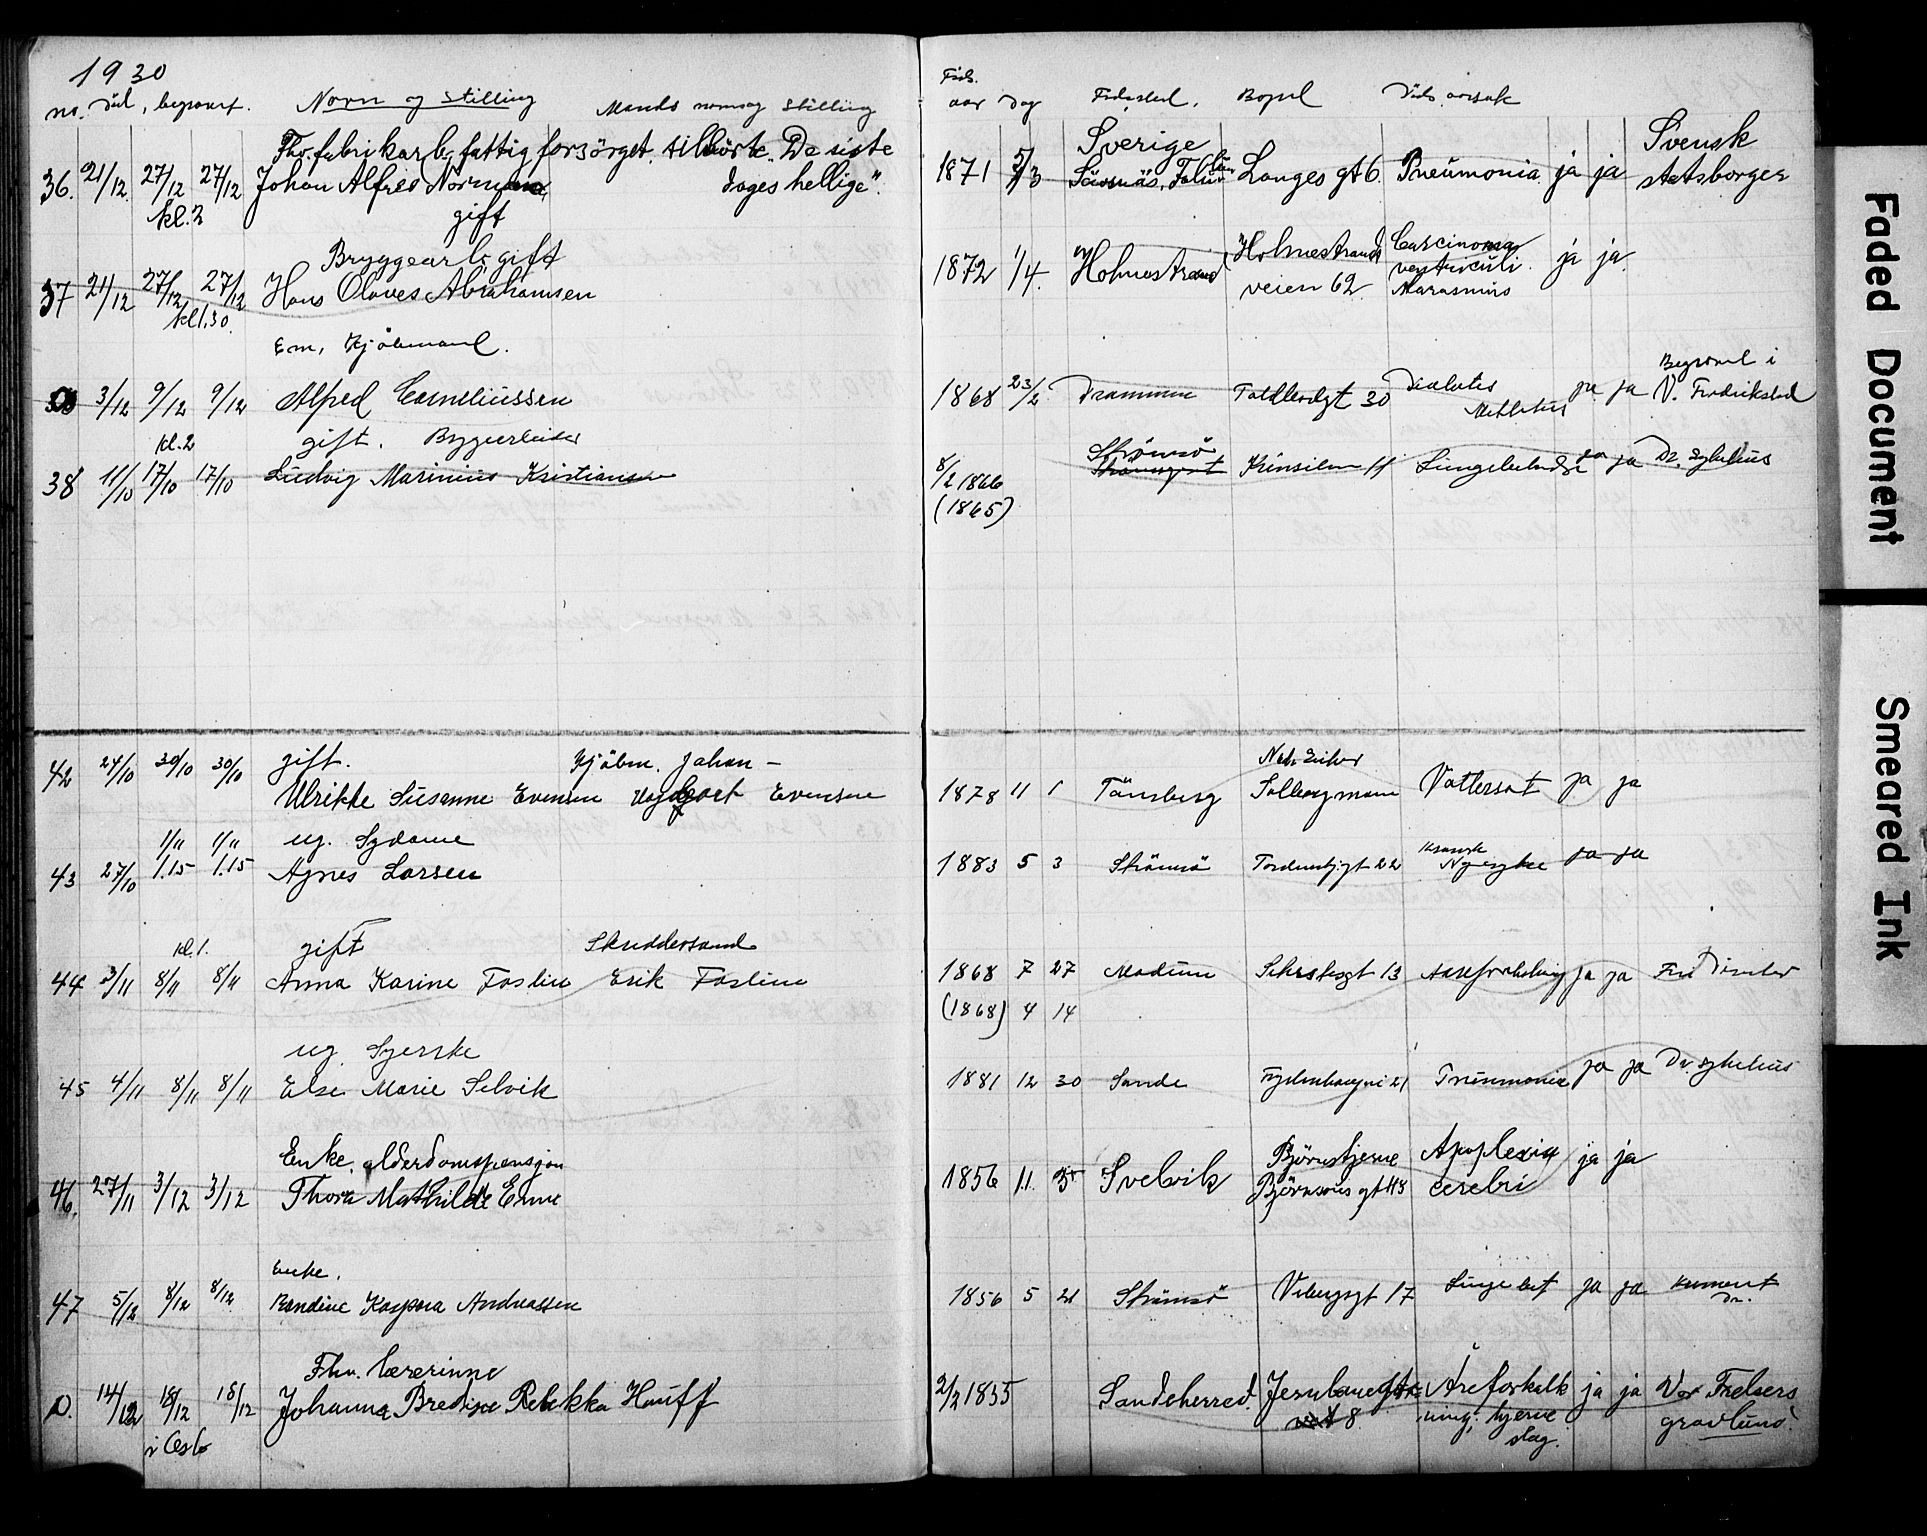 1930
no. död, begravet. Navn og stilling Mands navn og stilling
Föds.
aar dag Födested. Bopel Döds aarsak
Fhv. fabrikarb. fattig forsörget, tilhörte "De siste
36. 21/12. 27/12 27/12 Johan Alfred Norman dages hellige".
kl. 2 gift
Sverige Svensk
1871 3 Falun Langes gt 6. Pneumonia ja ja statsborger
Bryggearb. gift
37 21/12 27/12 27/12 Hans Olaves Abrahamsen
kl 1.30.
1872 1/4. Holmestrand Holmestrands Carcinoma ja ja.
veien 62. ventriculi.
Marasmus
Em. Kjöbmand.
3/12 9/12 9/12 Alfred Corneliussen
Begravd i
1868 23/2 Drammen Toldbodgt 30 Diabetes ja ja V. Fredrikstad
Mellitus
kl. 2 gift. Byggearbeider
38 11/10 17/10 17/10 Ludvig Marinius Kristiansen
8/2 1866 Strömsö
(1865)
11 ja ja Dr. Sykehus
gift. Kjöbm. Johan –
42 24/10 30/10 30/10 Ulrikke Susanne Evensen Evensen
Nedr. Eiker
1878 11 1 Tönsberg Solbergmoen Vattersot ja ja
1/11 1/11 ug. Sydame
43 27/10 1.15 1.15 Agnes Larsen
1883 5 3 Strömsö 22 kronisk Nyresyke ja ja
kl. 1. gift Skreddersvend
44 3/11 8/11 8/11 Anna Karine Foslien Erik Foslien
1868 7 27 Modum 13 Aareforkalkning ja ja Fru
(1868) 4 14
ug. Syerske
45 4/11 8/11 8/11 Else Marie Selvik
1881 12 30 Sande 21 Pneumonie ja ja Dr. sykehus
Enke, alderdomspensjon
46. 27/11 3/12 3/12 Thora Mathilde Enne
1856 11. Svelvik Björnstjerne Apoplexia ja ja
Björnsons gt cerebri
Enke.
47 5/12 8/12 8/12 Andreassen
1856 5 21 Strömsö Vibergsgt 17 Lunge bet ja ja
Dr.
Fhv. lærerinne
0. 14/12 18/12 18/12 Johanna Bredine Rebekka Hauff
i Oslo
2/2 1855 Sandeherred. 8 Areforkalk ja ja Vor Frelsers
ning, hjerne gravlund.
slag.
Faded Document
Smeared Ink